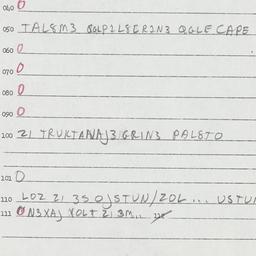 040 0
050 TALEM3 QOLP1L8ER2N3 QGLE CAPE
060 0
070 0
080 0
090 0
100 21 TRUKTANAJ3 GRIN3 PALETO
101 0
110 LOZ 21 350JSTUN/ZOL ... USTUN
111 N3XAJ XOLT 21 3M..